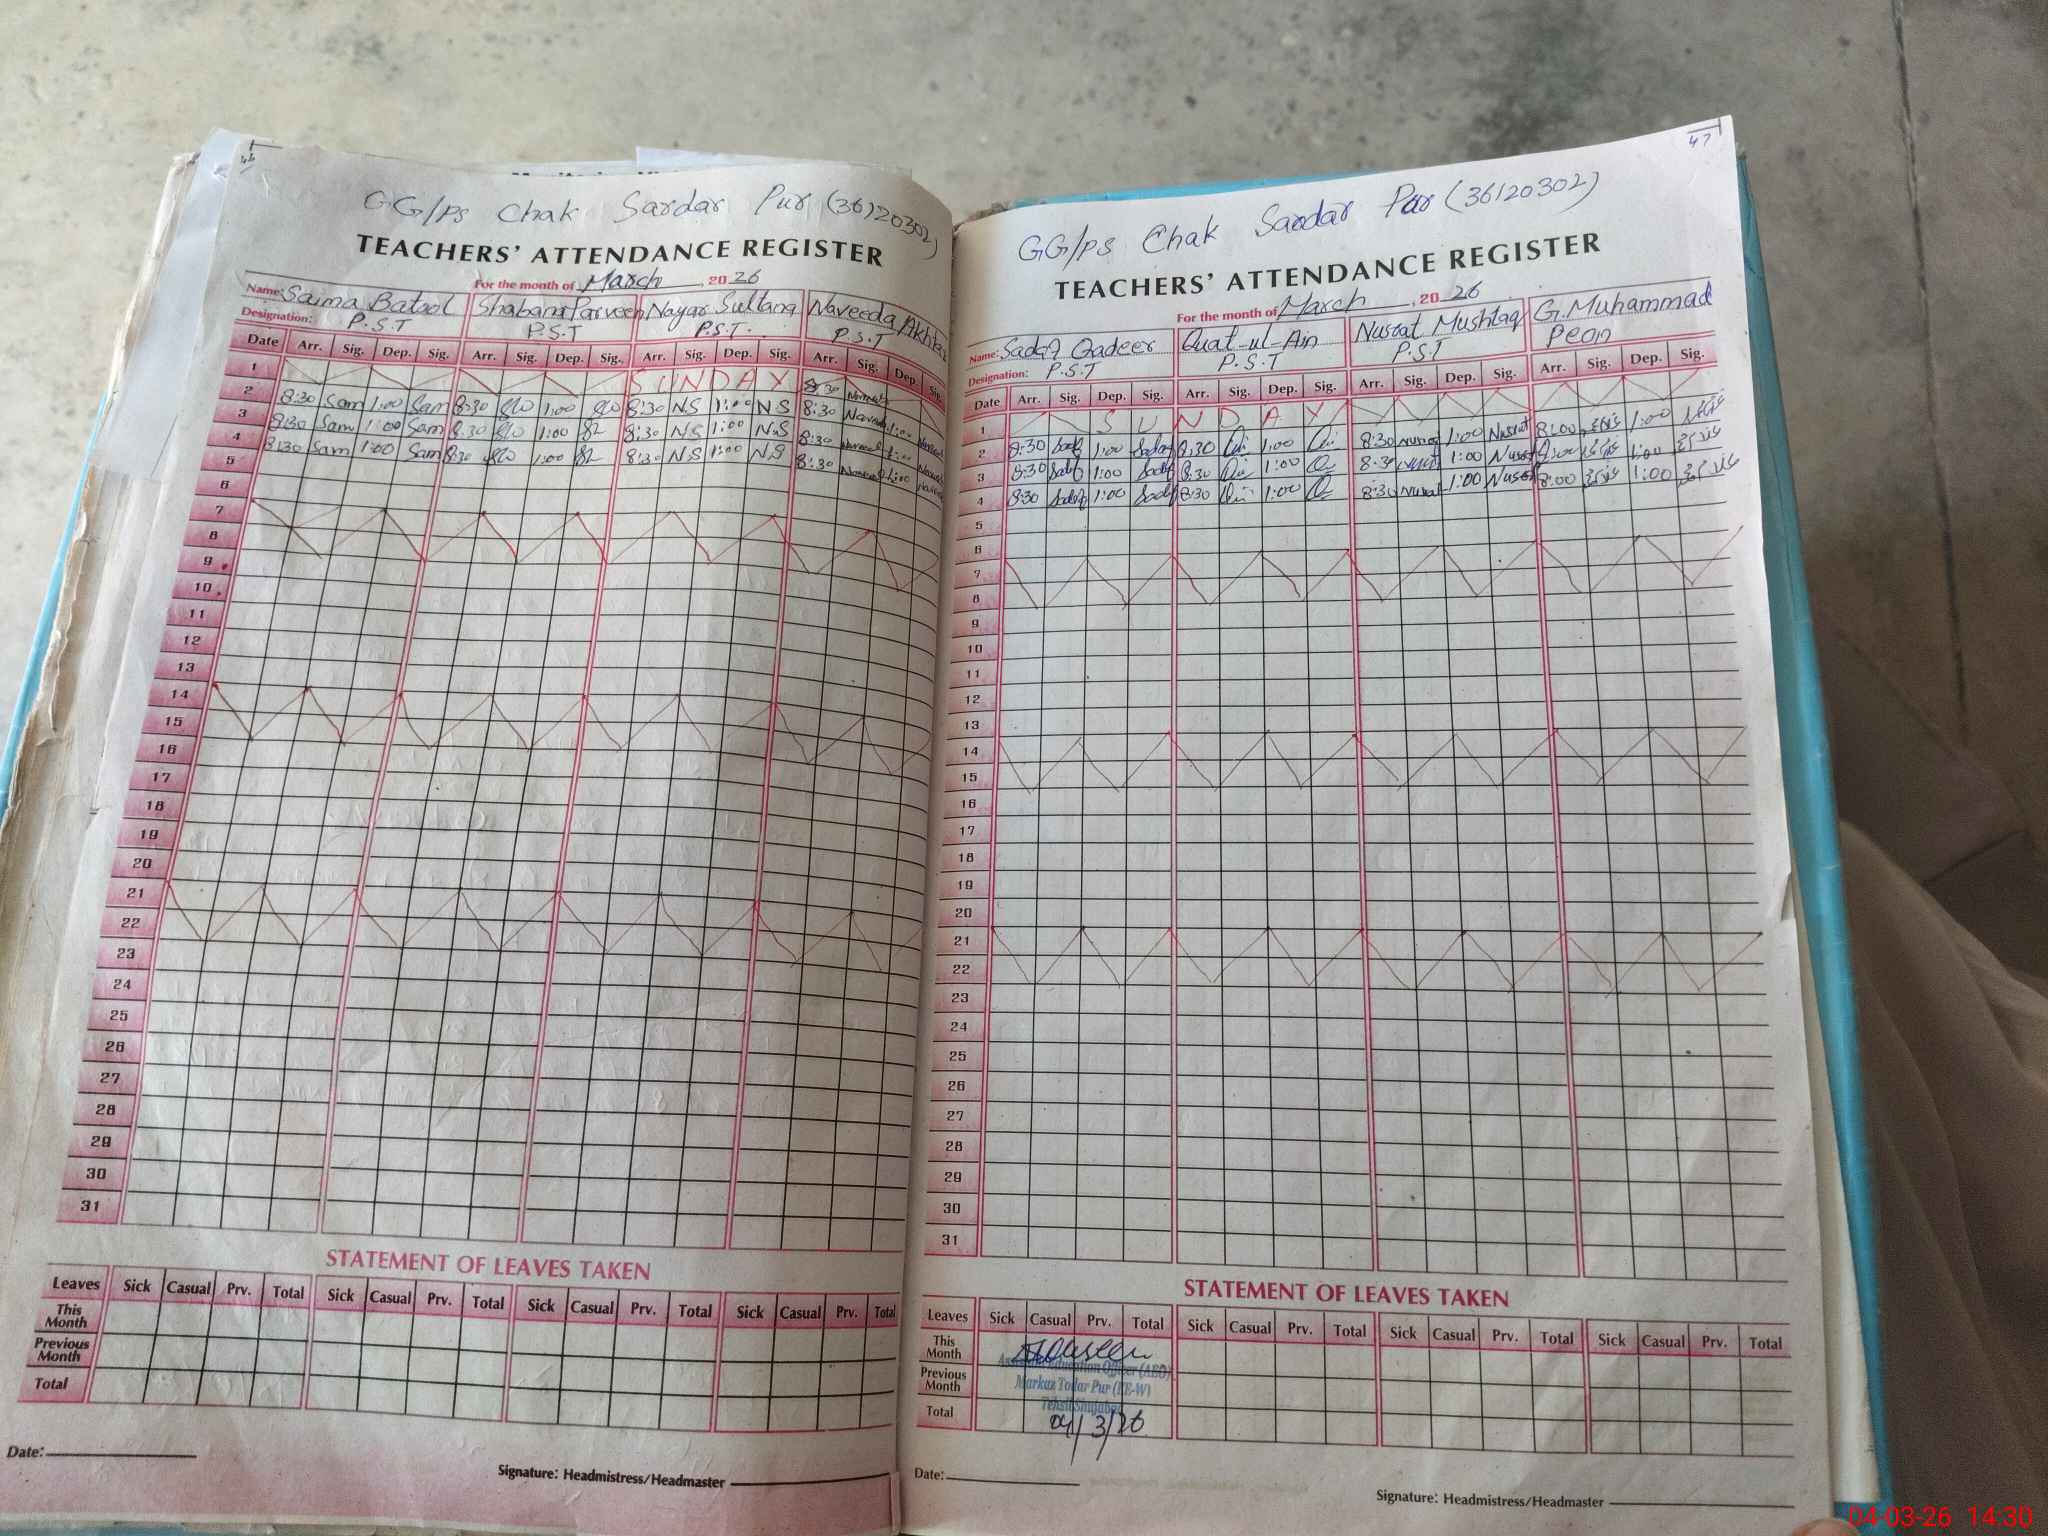 44
GG/ps Chak Sardar Pur (36120302)
TEACHERS' ATTENDANCE REGISTER
For the month of March, 2026
Name: Saima Batool Shabana Parveen Nayar Sultana Naveeda Akhter
Designation: P.S.T P.S.T P.S.T. P.S.T
Date Arr. Sig. Dep. Sig. Arr. Sig. Dep. Sig. Arr. Sig. Dep. Sig. Arr. Sig. Dep. Sig.
1 SUNDAY
2 8:30 Sam 1:00 Sam 8:30 1:00 8:30 NS 1:00 NS 8:30
3 8:30 Sam 1:00 Sam 8:30 1:00 8:30 NS 1:00 N.S 8:30 1:00
4 8:30 Sam 1:00 Sam 8:30 1:00 8:30 N.S 1:00 N.S 8:30 1:00
5
6
7
8
9
10
11
12
13
14
15
16
17
18
19
20
21
22
23
24
25
26
27
28
29
30
31
STATEMENT OF LEAVES TAKEN
Leaves Sick Casual Prv. Total Sick Casual Prv. Total Sick Casual Prv. Total Sick Casual Prv. Total
This Month
Previous Month
Total
Date:
Signature: Headmistress/Headmaster
47
GG/ps Chak Sardar Pur (36120302)
TEACHERS' ATTENDANCE REGISTER
For the month of March, 2026
Name: Sadaf Qadeer Quat-ul-Ain Nusrat Mushtaq G.Muhammad
Designation: P.S.T P.S.T P.S.T Peon
Date Arr. Sig. Dep. Sig. Arr. Sig. Dep. Sig. Arr. Sig. Dep. Sig. Arr. Sig. Dep. Sig.
1 SUNDAY
2 8:30 Sadaf 1:00 Sadaf 8:30 1:00 8:30 Nusrat 1:00 Nusrat 8:00 1:00
3 8:30 Sadaf 1:00 Sadaf 8:30 1:00 8:30 1:00 Nusrat 8:00 1:00
4 8:30 Sadaf 1:00 Sadaf 8:30 1:00 8:30 Nusrat 1:00 Nusrat 8:00 1:00
5
6
7
8
9
10
11
12
13
14
15
16
17
18
19
20
21
22
23
24
25
26
27
28
29
30
31
STATEMENT OF LEAVES TAKEN
Leaves Sick Casual Prv. Total Sick Casual Prv. Total Sick Casual Prv. Total Sick Casual Prv. Total
This Month
Previous Month
Total
Education Officer (AEO)
Markaz Todar Pur (EE-W)
Tehsil Shujabad
04/3/26
Date:
Signature: Headmistress/Headmaster
04-03-26 14:30